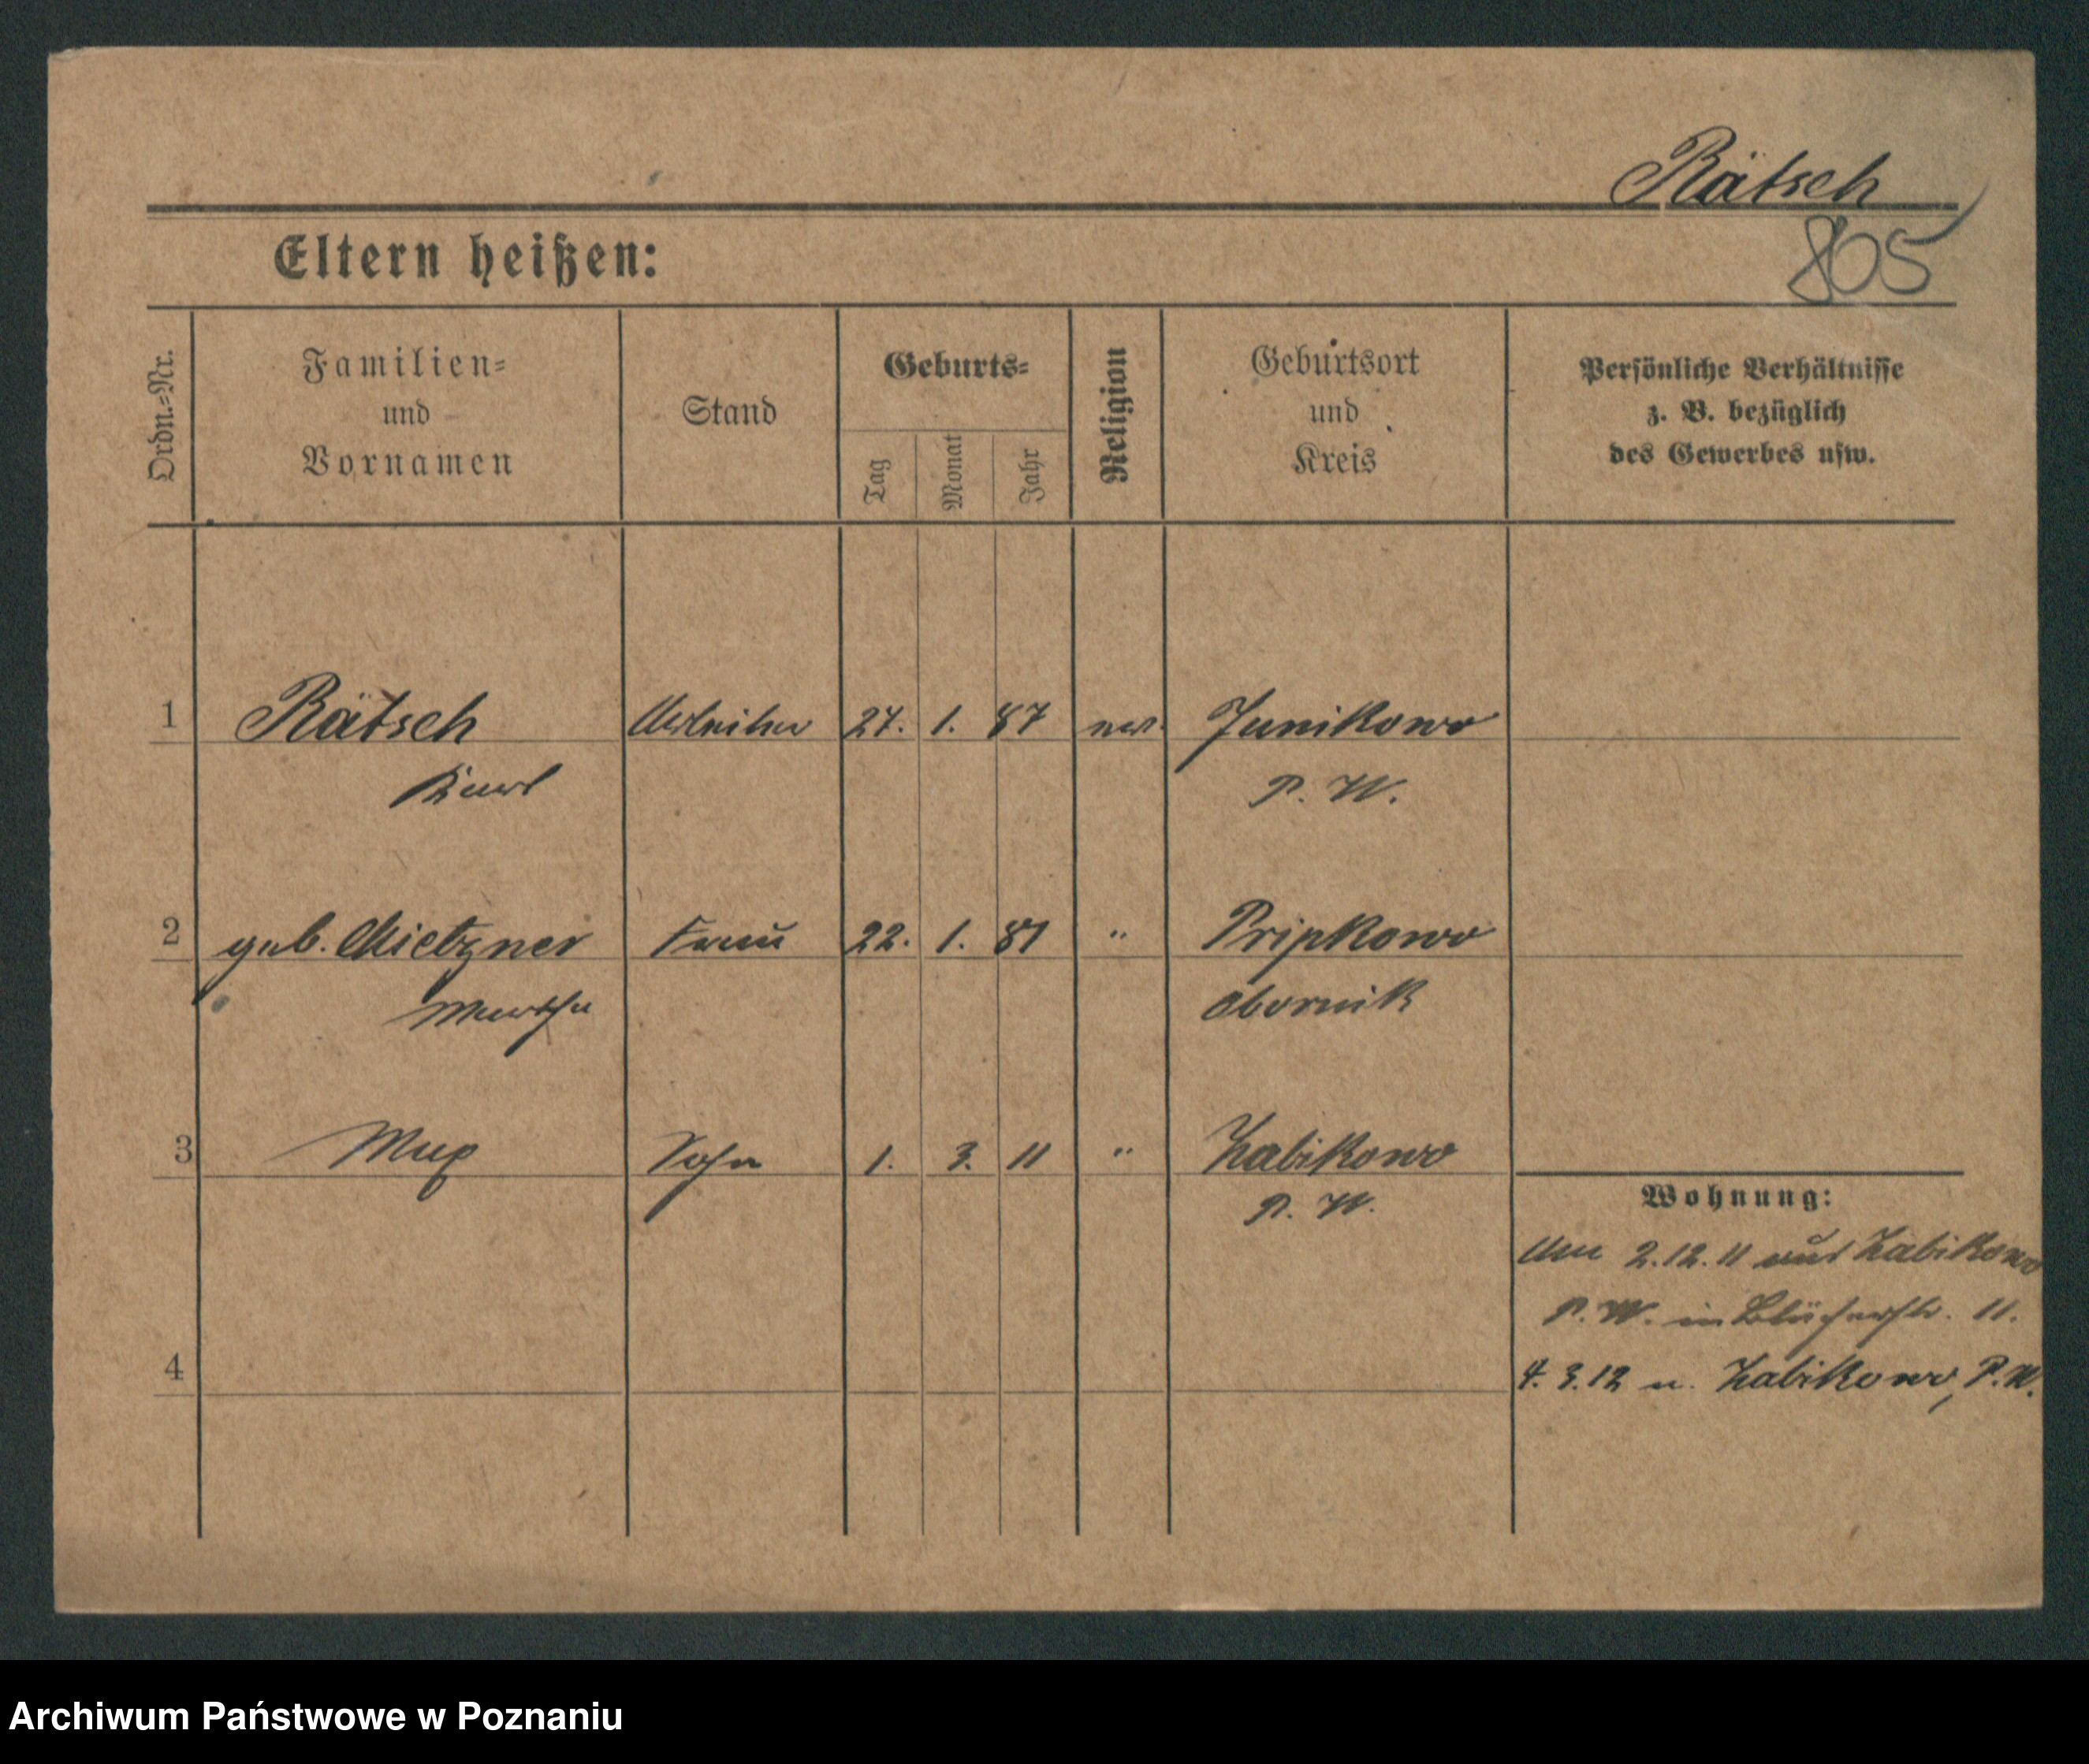 Rätsch
805
Eltern heißen:
Ordn.-Nr.
Familien- und Vornamen
Stand
Geburts-
Tag
Monat
Jahr
Religion
Geburtsort und Kreis
Persönliche Verhältnisse
z. B. bezüglich
des Gewerbes usw.
1 Rätsch Arbeiter 27. 1. 87 ev. Junikowo
Karl P. W.
2 geb. Mietzner Frau 22. 1. 81 " Pripkowo
Martha Obornik
3 Max Sohn 1. 3. 11 " Zabikowo
P. W.
Wohnung:
Am 2.12.11 aus Zabikowo
P. W. in Blücherstr. 11.
4
4. 3. 12 n. Zabikowo, P. W.
Archiwum Państwowe w Poznaniu